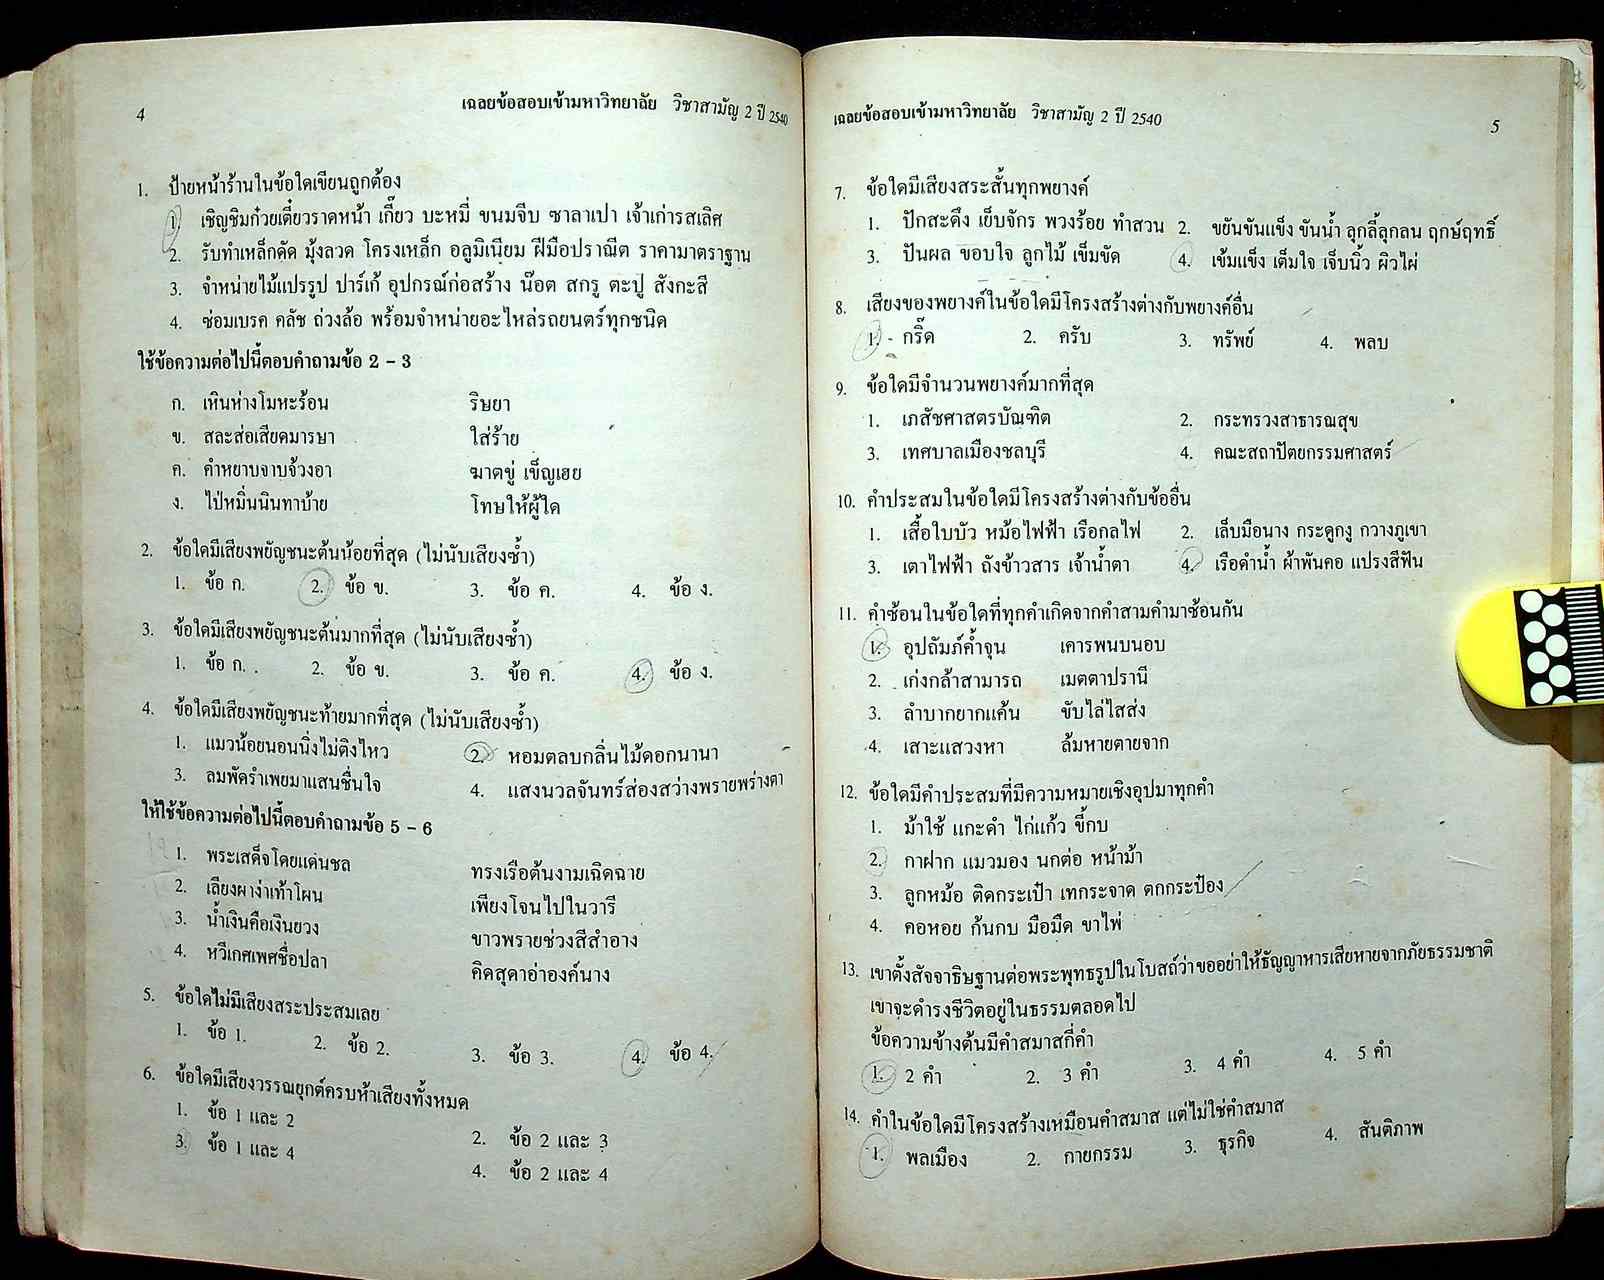 4
เฉลยข้อสอบเข้ามหาวิทยาลัย วิชาสามัญ 2 ปี 2540
1. ป้ายหน้าร้านในข้อใดเขียนถูกต้อง
1. เชิญชิมก๋วยเตี๋ยวราดหน้า เกี๊ยว บะหมี่ ขนมจีบ ซาลาเปา เจ้าเก่ารสเลิศ
2. รับทำเหล็กดัด มุ้งลวด โครงเหล็ก อลูมิเนียม ฝีมือปราณีต ราคามาตราฐาน
3. จำหน่ายไม้แปรรูป ปาร์เก้ อุปกรณ์ก่อสร้าง น๊อต สกรู ตะปู สังกะสี
4. ซ่อมเบรค คลัช ถ่วงล้อ พร้อมจำหน่ายอะไหล่รถยนตร์ทุกชนิด
ใช้ข้อความต่อไปนี้ตอบคำถามข้อ 2 – 3
ก. เหินห่างโมหะร้อน ริษยา
ข. สละส่อเสียดมารษา ใส่ร้าย
ค. คำหยาบจาบจ้วงอา ฆาตขู่ เข็ญเฮย
ง. ไป่หมิ่นนินทาบ้าย โทษให้ผู้ใด
2. ข้อใดมีเสียงพยัญชนะต้นน้อยที่สุด (ไม่นับเสียงซ้ำ)
1. ข้อ ก. 2. ข้อ ข. 3. ข้อ ค. 4. ข้อ ง.
3. ข้อใดมีเสียงพยัญชนะต้นมากที่สุด (ไม่นับเสียงซ้ำ)
1. ข้อ ก. 2. ข้อ ข. 3. ข้อ ค. 4. ข้อ ง.
4. ข้อใดมีเสียงพยัญชนะท้ายมากที่สุด (ไม่นับเสียงซ้ำ)
1. แมวน้อยนอนนิ่งไม่ติงไหว 2. หอมตลบกลิ่นไม้ดอกนานา
3. ลมพัดรำเพยมาแสนชื่นใจ 4. แสงนวลจันทร์ส่องสว่างพรายพร่างตา
ให้ใช้ข้อความต่อไปนี้ตอบคำถามข้อ 5 – 6
1. พระเสด็จโดยแด่นชล ทรงเรือต้นงามเฉิดฉาย
2. เลียงผาง่าเท้าโผน เพียงโจนไปในวารี
3. น้ำเงินคือเงินยวง ขาวพรายช่วงสีสำอาง
4. หวีเกศเพศชื่อปลา คิดสุดาอ่าองค์นาง
5. ข้อใดไม่มีเสียงสระประสมเลย
1. ข้อ 1. 2. ข้อ 2. 3. ข้อ 3. 4. ข้อ 4.
6. ข้อใดมีเสียงวรรณยุกต์ครบห้าเสียงทั้งหมด
1. ข้อ 1 และ 2 2. ข้อ 2 และ 3
3. ข้อ 1 และ 4 4. ข้อ 2 และ 4
เฉลยข้อสอบเข้ามหาวิทยาลัย วิชาสามัญ 2 ปี 2540
5
7. ข้อใดมีเสียงสระสั้นทุกพยางค์
1. ปักสะดึง เย็บจักร พวงร้อย ทำสวน 2. ขยันขันแข็ง ขันน้ำ ลุกลี้ลุกลน ฤกษ์ฤทธิ์
3. ปันผล ขอบใจ ลูกไม้ เข็มขัด 4. เข้มแข็ง เต็มใจ เจ็บนิ้ว ผิวไผ่
8. เสียงของพยางค์ในข้อใดมีโครงสร้างต่างกับพยางค์อื่น
1. กริ๊ด 2. ครับ 3. ทรัพย์ 4. พลบ
9. ข้อใดมีจำนวนพยางค์มากที่สุด
1. เภสัชศาสตรบัณฑิต 2. กระทรวงสาธารณสุข
3. เทศบาลเมืองชลบุรี 4. คณะสถาปัตยกรรมศาสตร์
10. คำประสมในข้อใดมีโครงสร้างต่างกับข้ออื่น
1. เสื้อใบบัว หม้อไฟฟ้า เรือกลไฟ 2. เล็บมือนาง กระดูกงู กวางภูเขา
3. เตาไฟฟ้า ถังข้าวสาร เจ้าน้ำตา 4. เรือดำน้ำ ผ้าพันคอ แปรงสีฟัน
11. คำซ้อนในข้อใดที่ทุกคำเกิดจากคำสามคำมาซ้อนกัน
1. อุปถัมภ์ค้ำจุน เคารพนบนอบ
2. เก่งกล้าสามารถ เมตตาปรานี
3. ลำบากยากแค้น ขับไล่ไสส่ง
4. เสาะแสวงหา ล้มหายตายจาก
12. ข้อใดมีคำประสมที่มีความหมายเชิงอุปมาทุกคำ
1. ม้าใช้ แกะดำ ไก่แก้ว ขี้กบ
2. กาฝาก แมวมอง นกต่อ หน้าม้า
3. ลูกหม้อ ติดกระเป๋า เทกระจาด ตกกระป๋อง
4. คอหอย ก้นกบ มือมืด ขาไพ่
13. เขาตั้งสัจจาธิษฐานต่อพระพุทธรูปในโบสถ์ว่าขออย่าให้ธัญญาหารเสียหายจากภัยธรรมชาติ
เขาจะดำรงชีวิตอยู่ในธรรมตลอดไป
ข้อความข้างต้นมีคำสมาสกี่คำ
1. 2 คำ 2. 3 คำ 3. 4 คำ 4. 5 คำ
14. คำในข้อใดมีโครงสร้างเหมือนคำสมาส แต่ไม่ใช่คำสมาส
1. พลเมือง 2. กายกรรม 3. ธุรกิจ 4. สันติภาพ